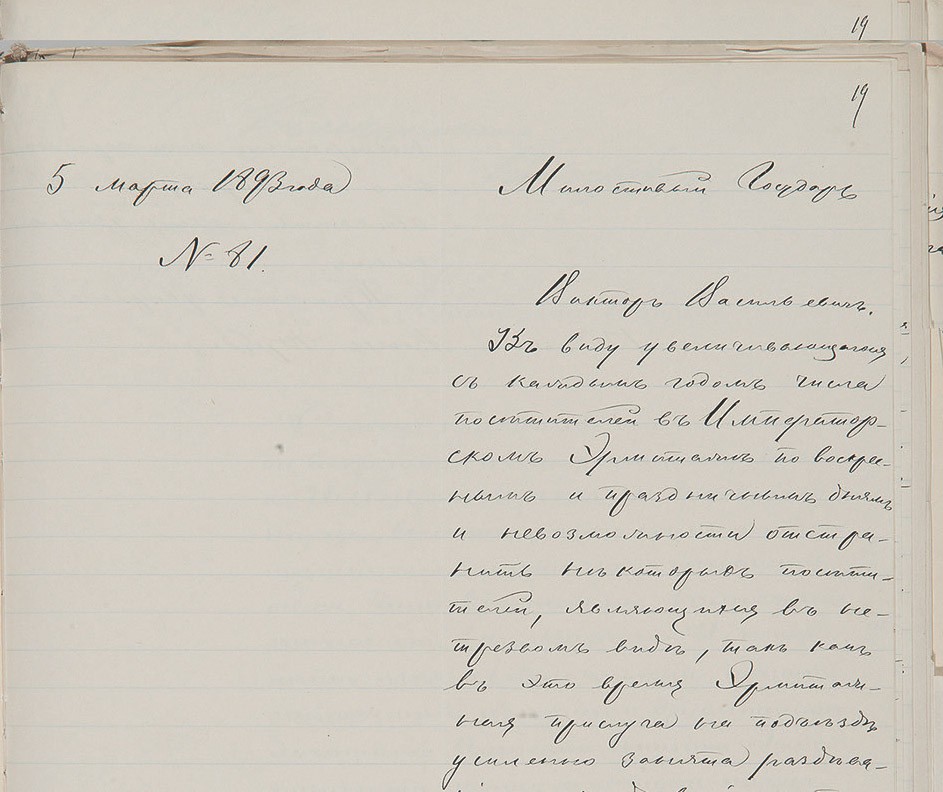 19
19
5 марта 1893 года
Милостивый Государь
№ 81.
Викторъ Васильевичъ.
Въ виду увеличивающагося
съ каждымъ годомъ числа
посѣтителей въ Император-
скомъ Эрмитажѣ по воскре-
нымъ и праздничнымъ днямъ
и невозможности отстра-
нить нѣкоторыхъ посѣти-
телей, являющихся въ не-
трезвомъ видѣ, такъ какъ
въ это время Эрмитаж-
ная прислуга на подъѣздѣ
усиленно занята раздѣва-